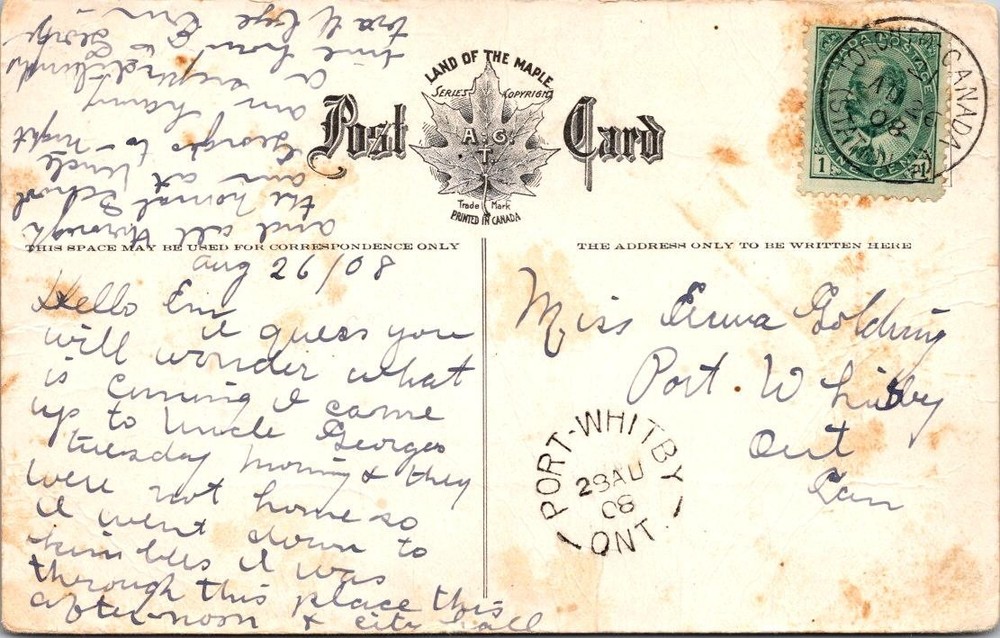 LAND OF THE MAPLE
SERIES COPYRIGHT
Post Card
A.G.
T.
Trade Mark
PRINTED IN CANADA
THIS SPACE MAY BE USED FOR CORRESPONDENCE ONLY
THE ADDRESS ONLY TO BE WRITTEN HERE
CANADA POSTAGE
1 ONE CENT 1
TORONTO, CANADA
AU 26
08
aug 26/08
Hello Em
i guess you
will wonder what
is coming i came
up to Uncle Georges
tuesday morning & they
were not home so
i went down to
i was
through this place this
afternoon & city hall
and all through
the normal School
am at Uncle
Georges to-night
am having
a time
from Em
ta Bye Em
Miss Emma Golding
Port Whitby
Ont
Can
PORT-WHITBY
28 AU
08
ONT.